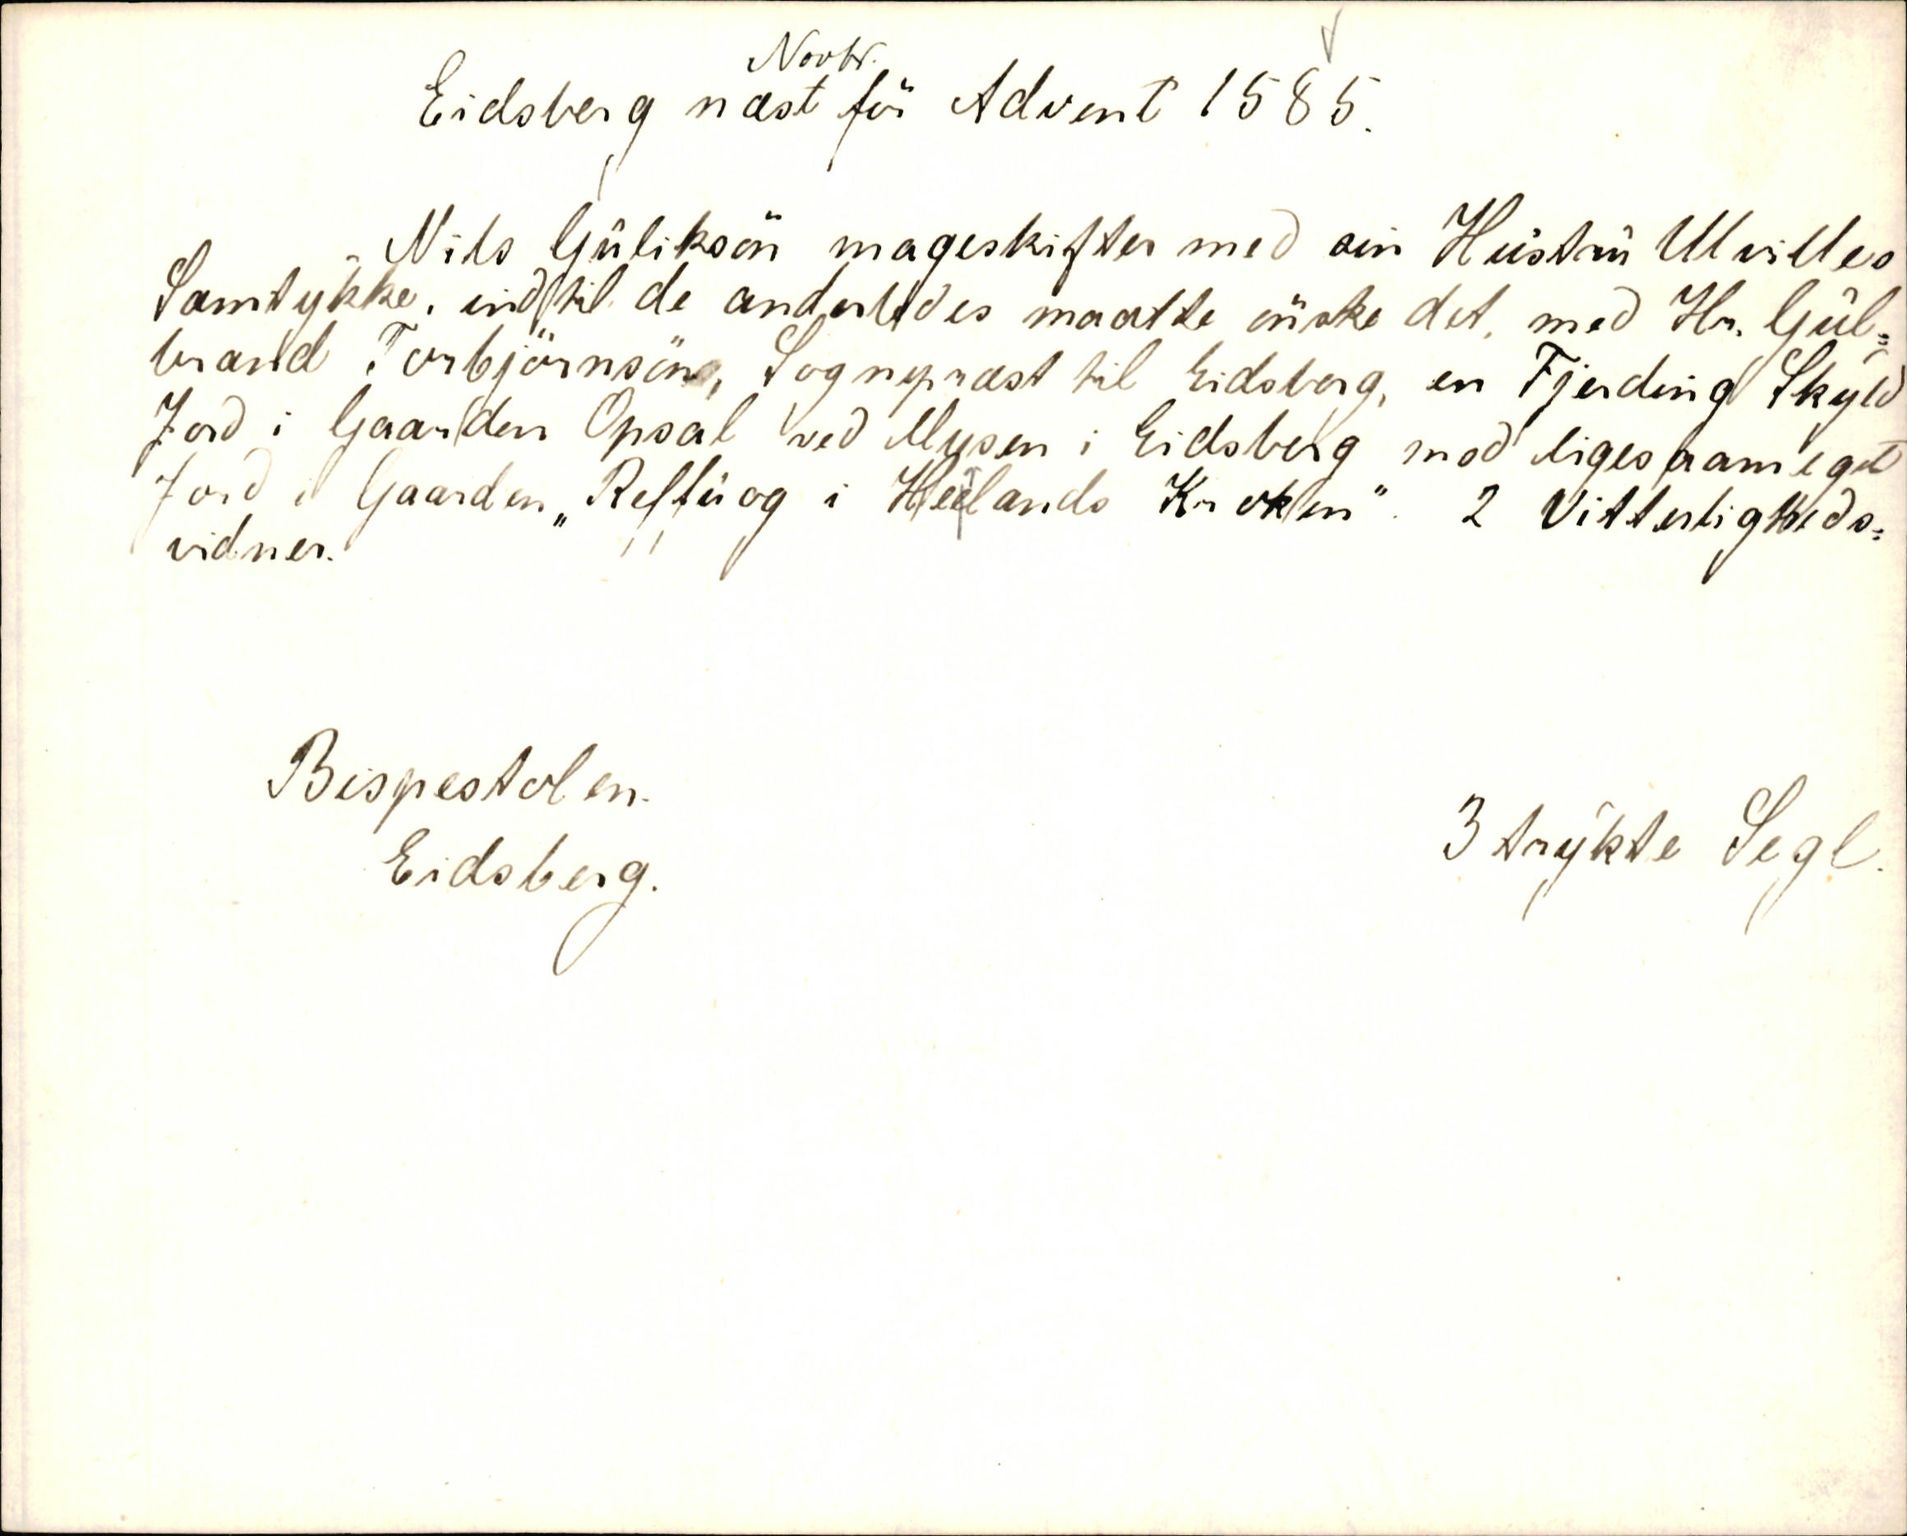 Novbr.
Eidsberg næst för Advent 1585.
Nils Guliksön mageskifter med sin Hustru Ulvilles
Samtykke, indtil de anderledes maatte önske det, med Hr. Gul=
brand Torbjörnsön, Sognepræst til Eidsberg, en Fjerding Skyld
Jord i Gaarden Opsal ved Mysen i Eidsberg mod ligesaameget
Jord i Gaarden „Reffu og i Heelands Kroken". 2 Vitterligheds=
vidner.
Bispestolen.
Eidsberg.
3 trykte Segl.